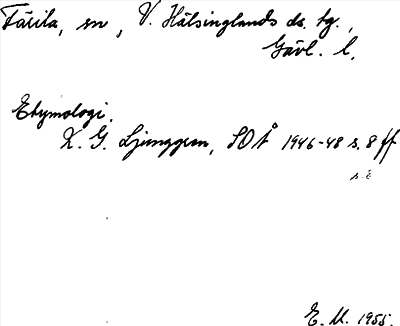 Färila, sn, V. Hälsinglands ds. tg.,
Gävl. l.
Etymologi.
K. G. Ljunggren, SOÅ 1946-48 s. 8 ff
E. M. 1955.